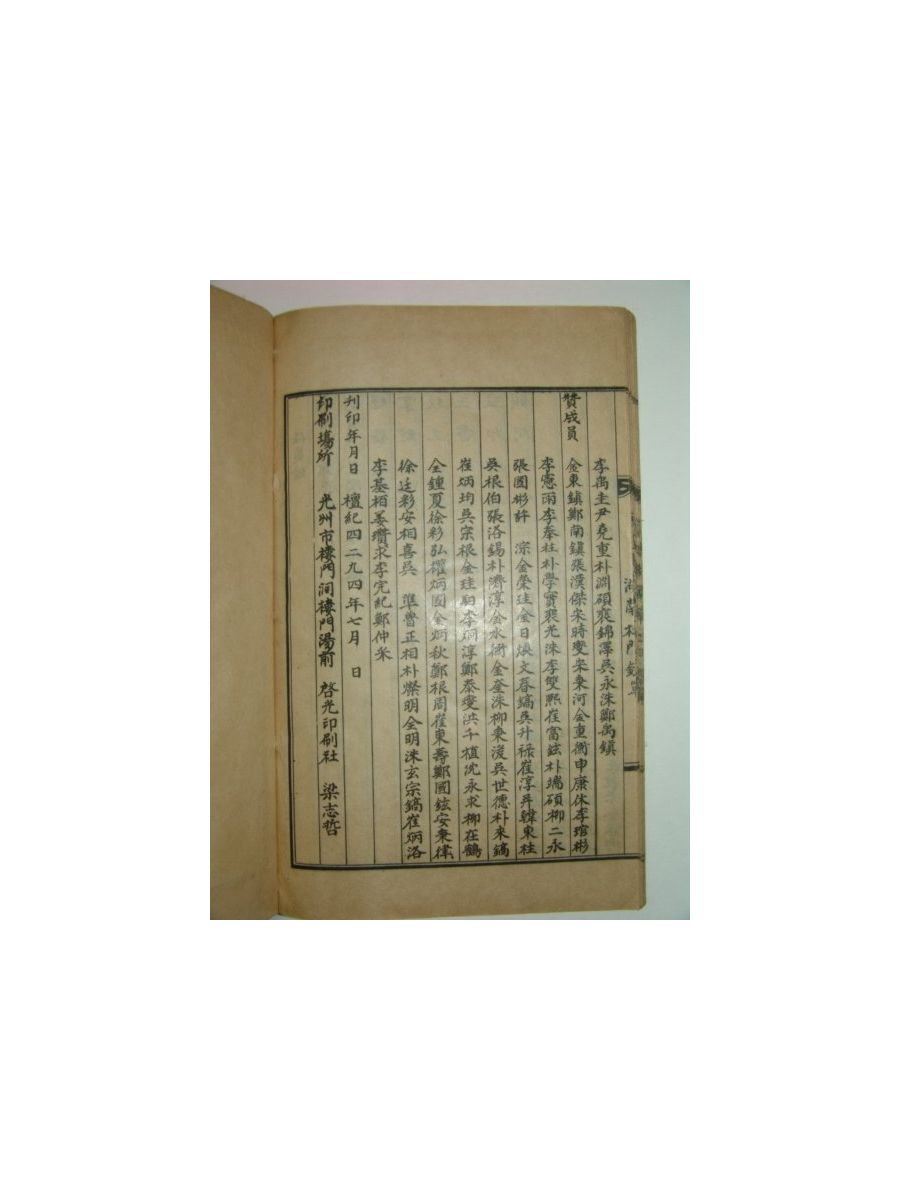 李卨圭尹堯重朴淵碩裵錦澤吳永洙鄭禹鎭
贊成員
金東鎭鄭南鎭張漢傑宋時燮宋秉河金重衡申康休李琯彬
李憲雨李奉柱朴學實裵光洙李雙熙崔富鉉朴瑞碩柳二永
張國彬許 淙金榮珪金日煥文春鎬吳升祿崔淳昇韓東柱
吳根伯張洛錫朴濟淳金永衡金奎洙柳東浚吳世德朴來鎬
崔炳均吳宗根金珪駒李炯淳鄭泰燮洪千植沈永求柳在鶴
全鍾夏徐彩弘權炳國金炳秋鄭根周崔東壽鄭國鉉安秉律
徐廷彩安相喜吳 準曺正相朴燦明全明洙玄宗鎬崔炳洛
李基栢姜瓚求李完紀鄭仲采
刊印年月日 檀紀四二九四年七月 日
印刷場所 光州市樓門洞樓門湯前 啓光印刷社 梁志哲